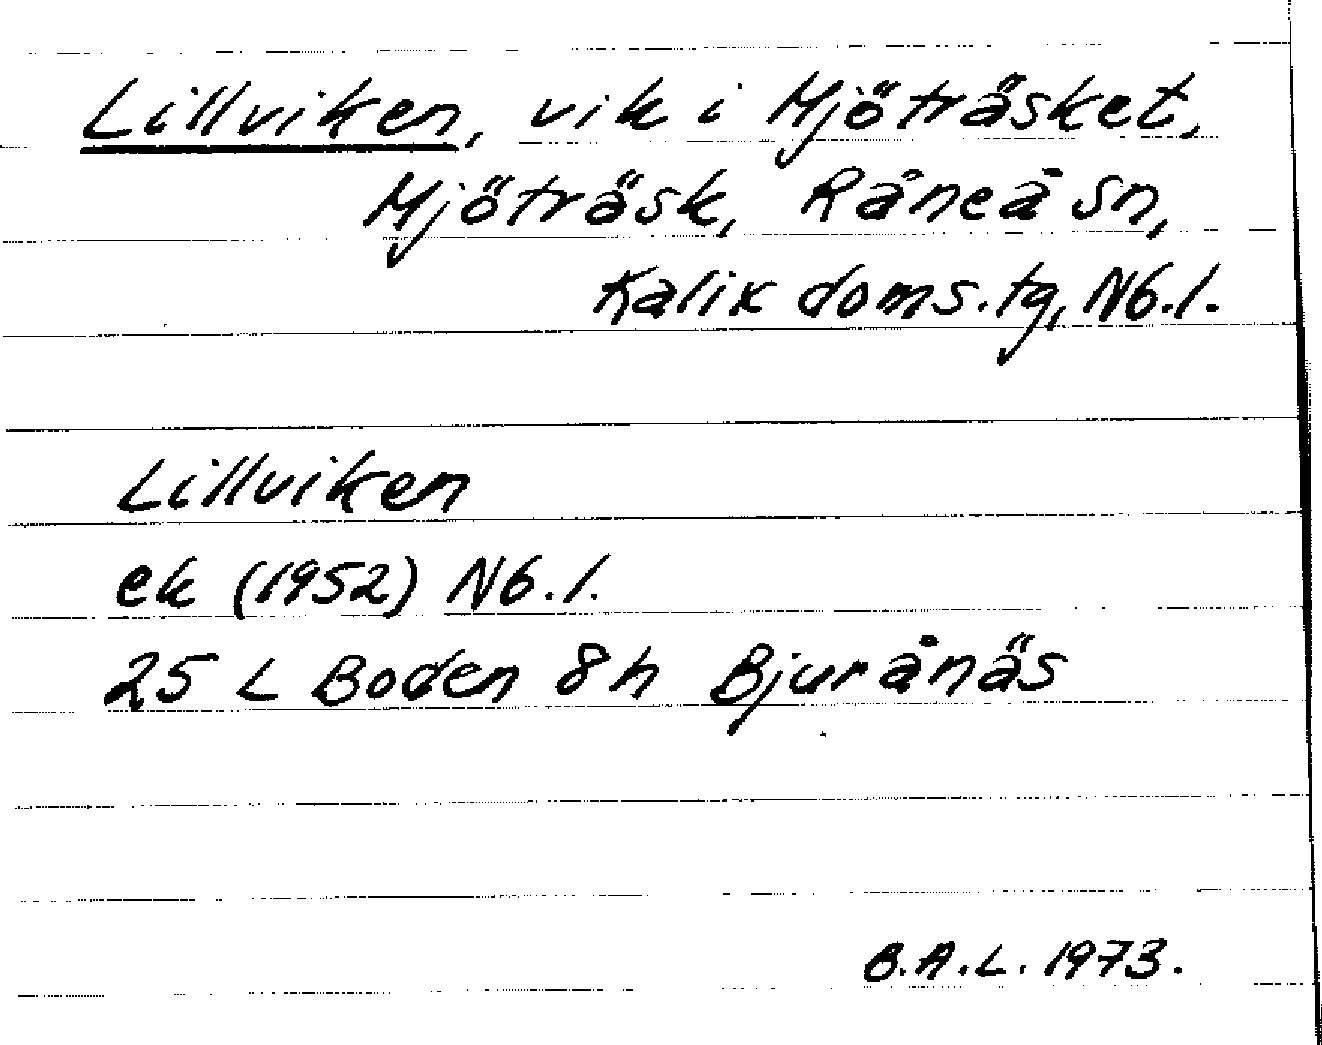 Lillviken, vik i Mjöträsket,
Mjöträsk, Råneå sn,
Kalix doms.tg, Nb.l.
Lillviken
ek (1952) Nb.l.
25 L Boden 8h Bjurånäs
B.A.L. 1973.